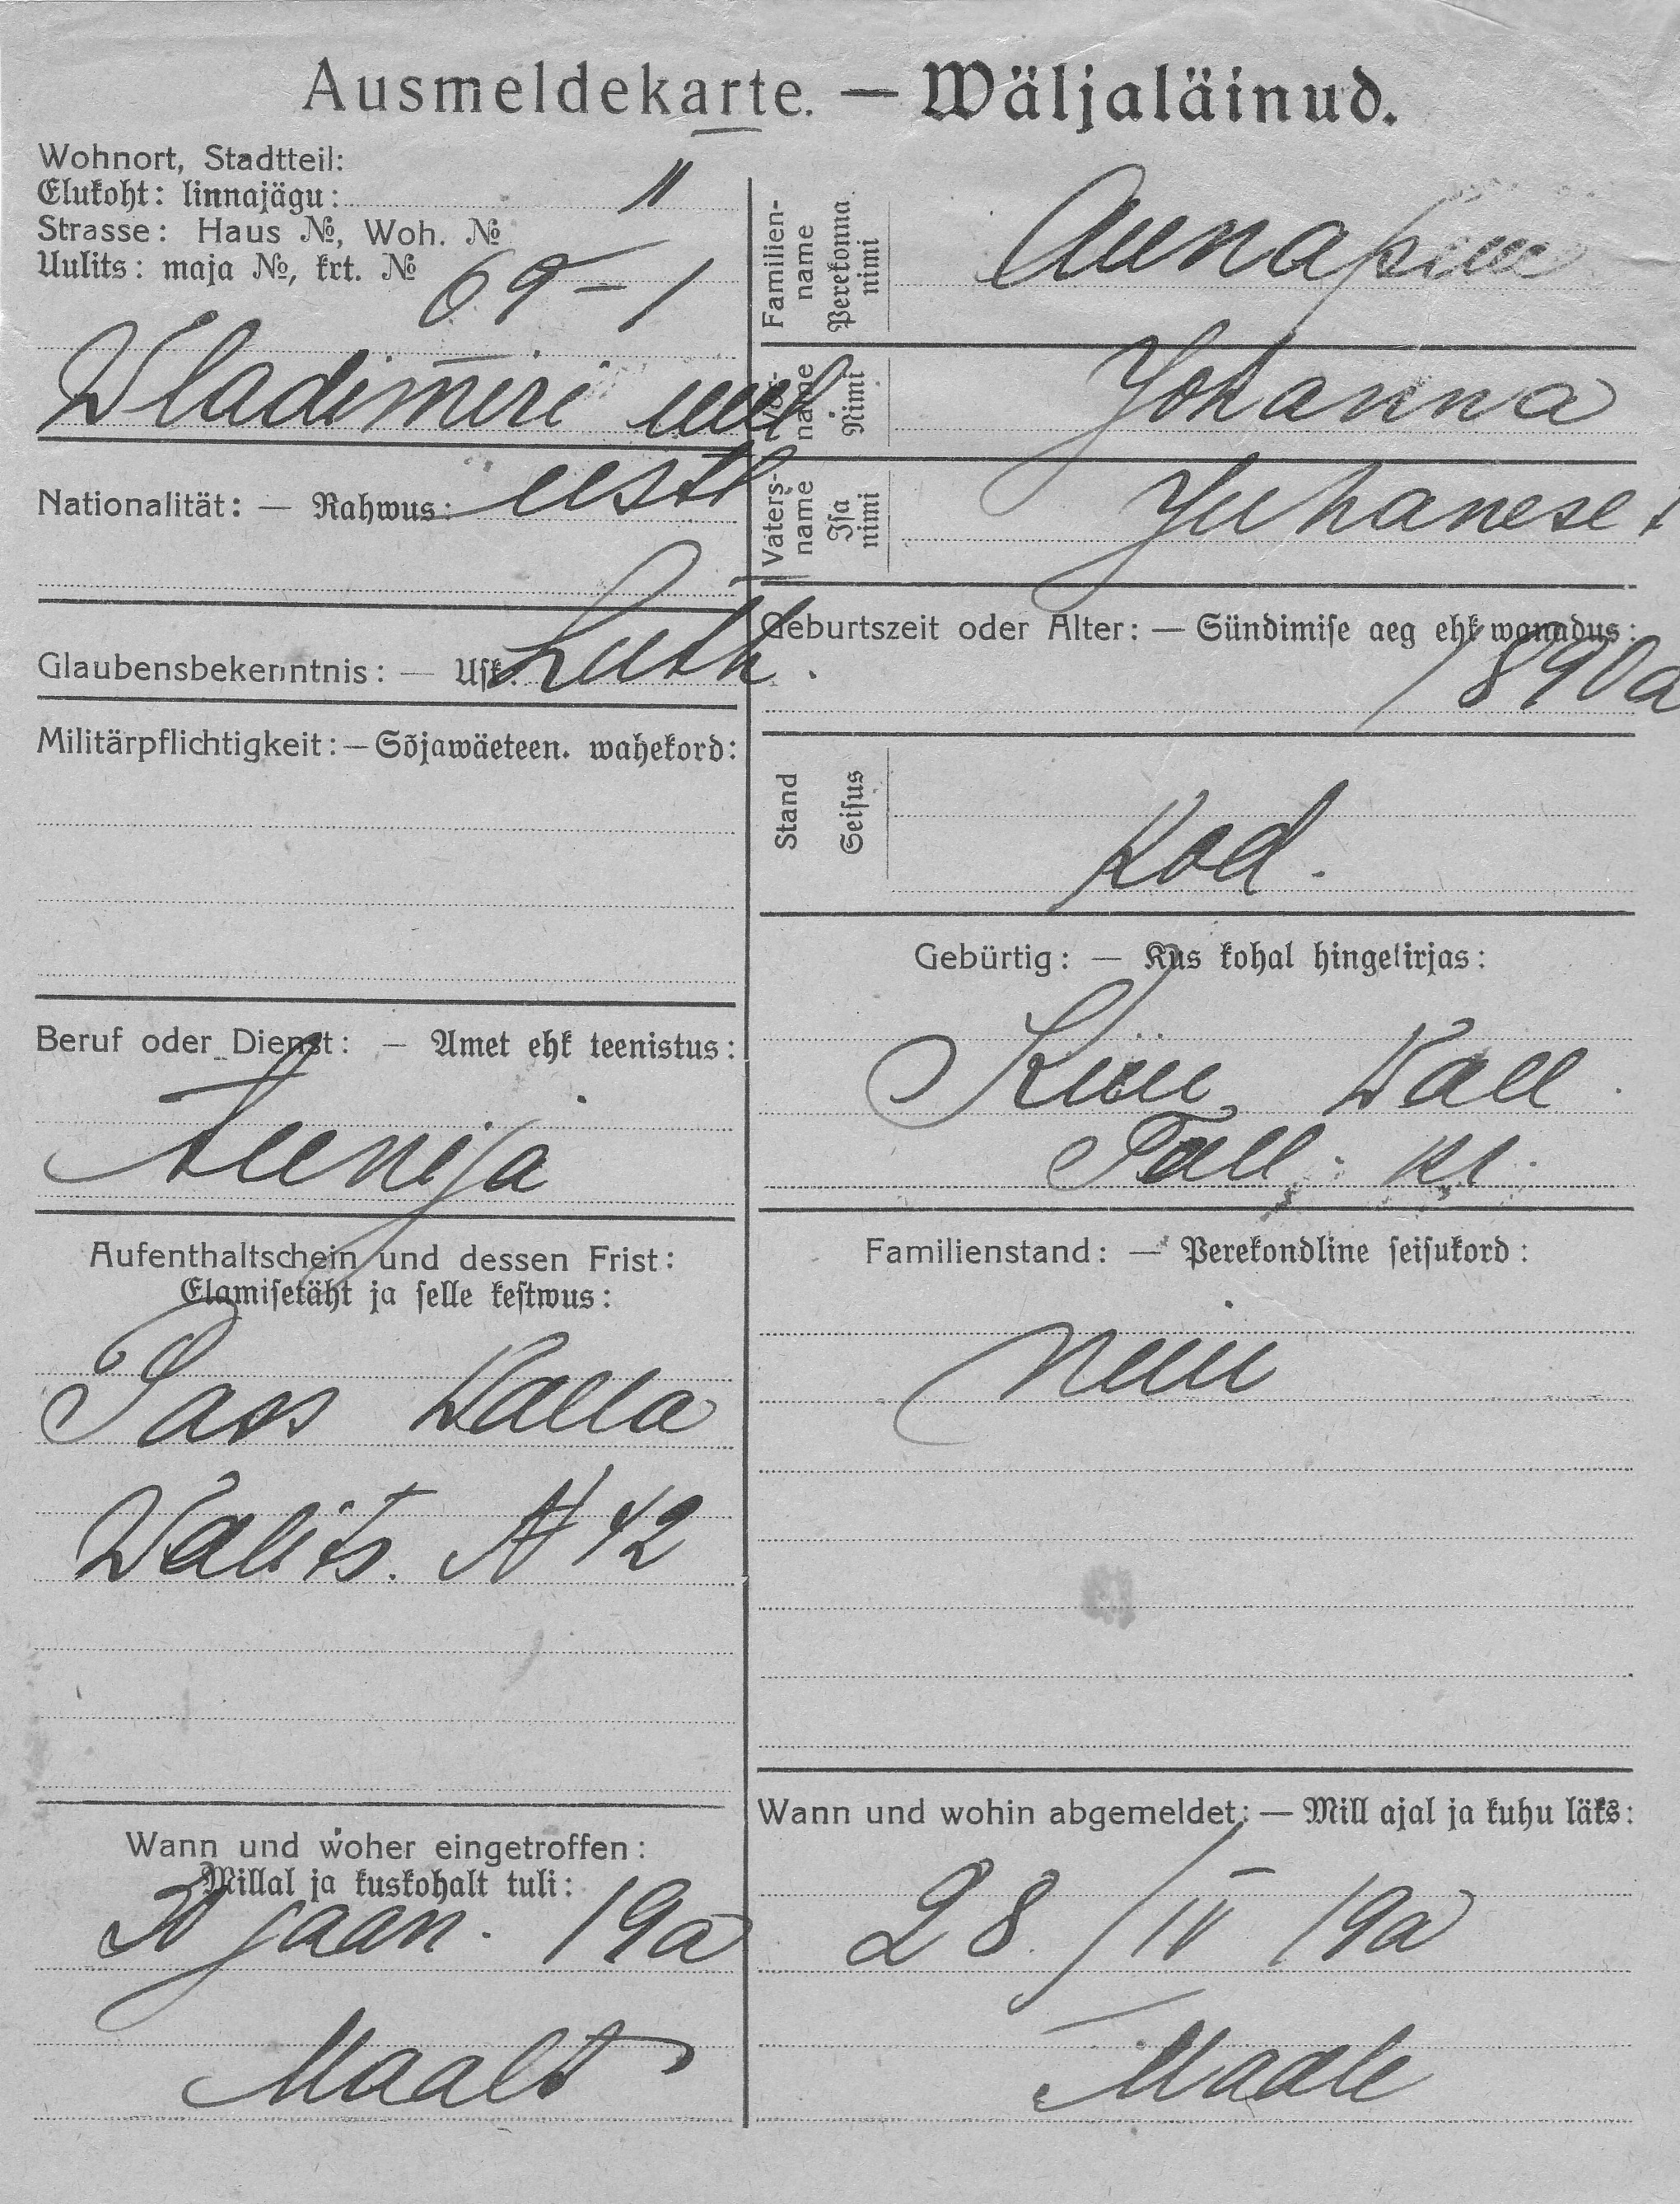 Ausmeldekarte. — Wäljaläinud.
Wohnort, Stadtteil:
Elukoht: linnajägu: II
Strasse: Haus №, Woh. №
Uulits: maja №, krt. № 69-1
Wladimiri uul
Nationalität: — Rahwus: eestl
Glaubensbekenntnis: — Usk. Luth.
Militärpflichtigkeit: — Sõjawäeteen. wahekord:
Beruf oder Dienst: — Amet ehk teenistus:
teenija
Aufenthaltschein und dessen Frist:
Elamisetäht ja selle kestwus:
Pass Walla
Walits. N 42
Wann und woher eingetroffen:
Millal ja kuskohalt tuli:
30 jaan. 19a
Maalt
Familien-
name
Perekonna
nimi
Johanna
Vor-
name
Nimi
Juhanese t
Vaters-
name
Isa
nimi
Geburtszeit oder Alter: — Sündimise aeg ehk wanadus:
1890a
Stand
Seisus
Kod.
Gebürtig: — Kus kohal hingekirjas:
Wall
Tall. kr.
Familienstand: — Perekondline seisukord:
neiu
Wann und wohin abgemeldet: — Mill ajal ja kuhu läks:
28./IV 19a
Maale